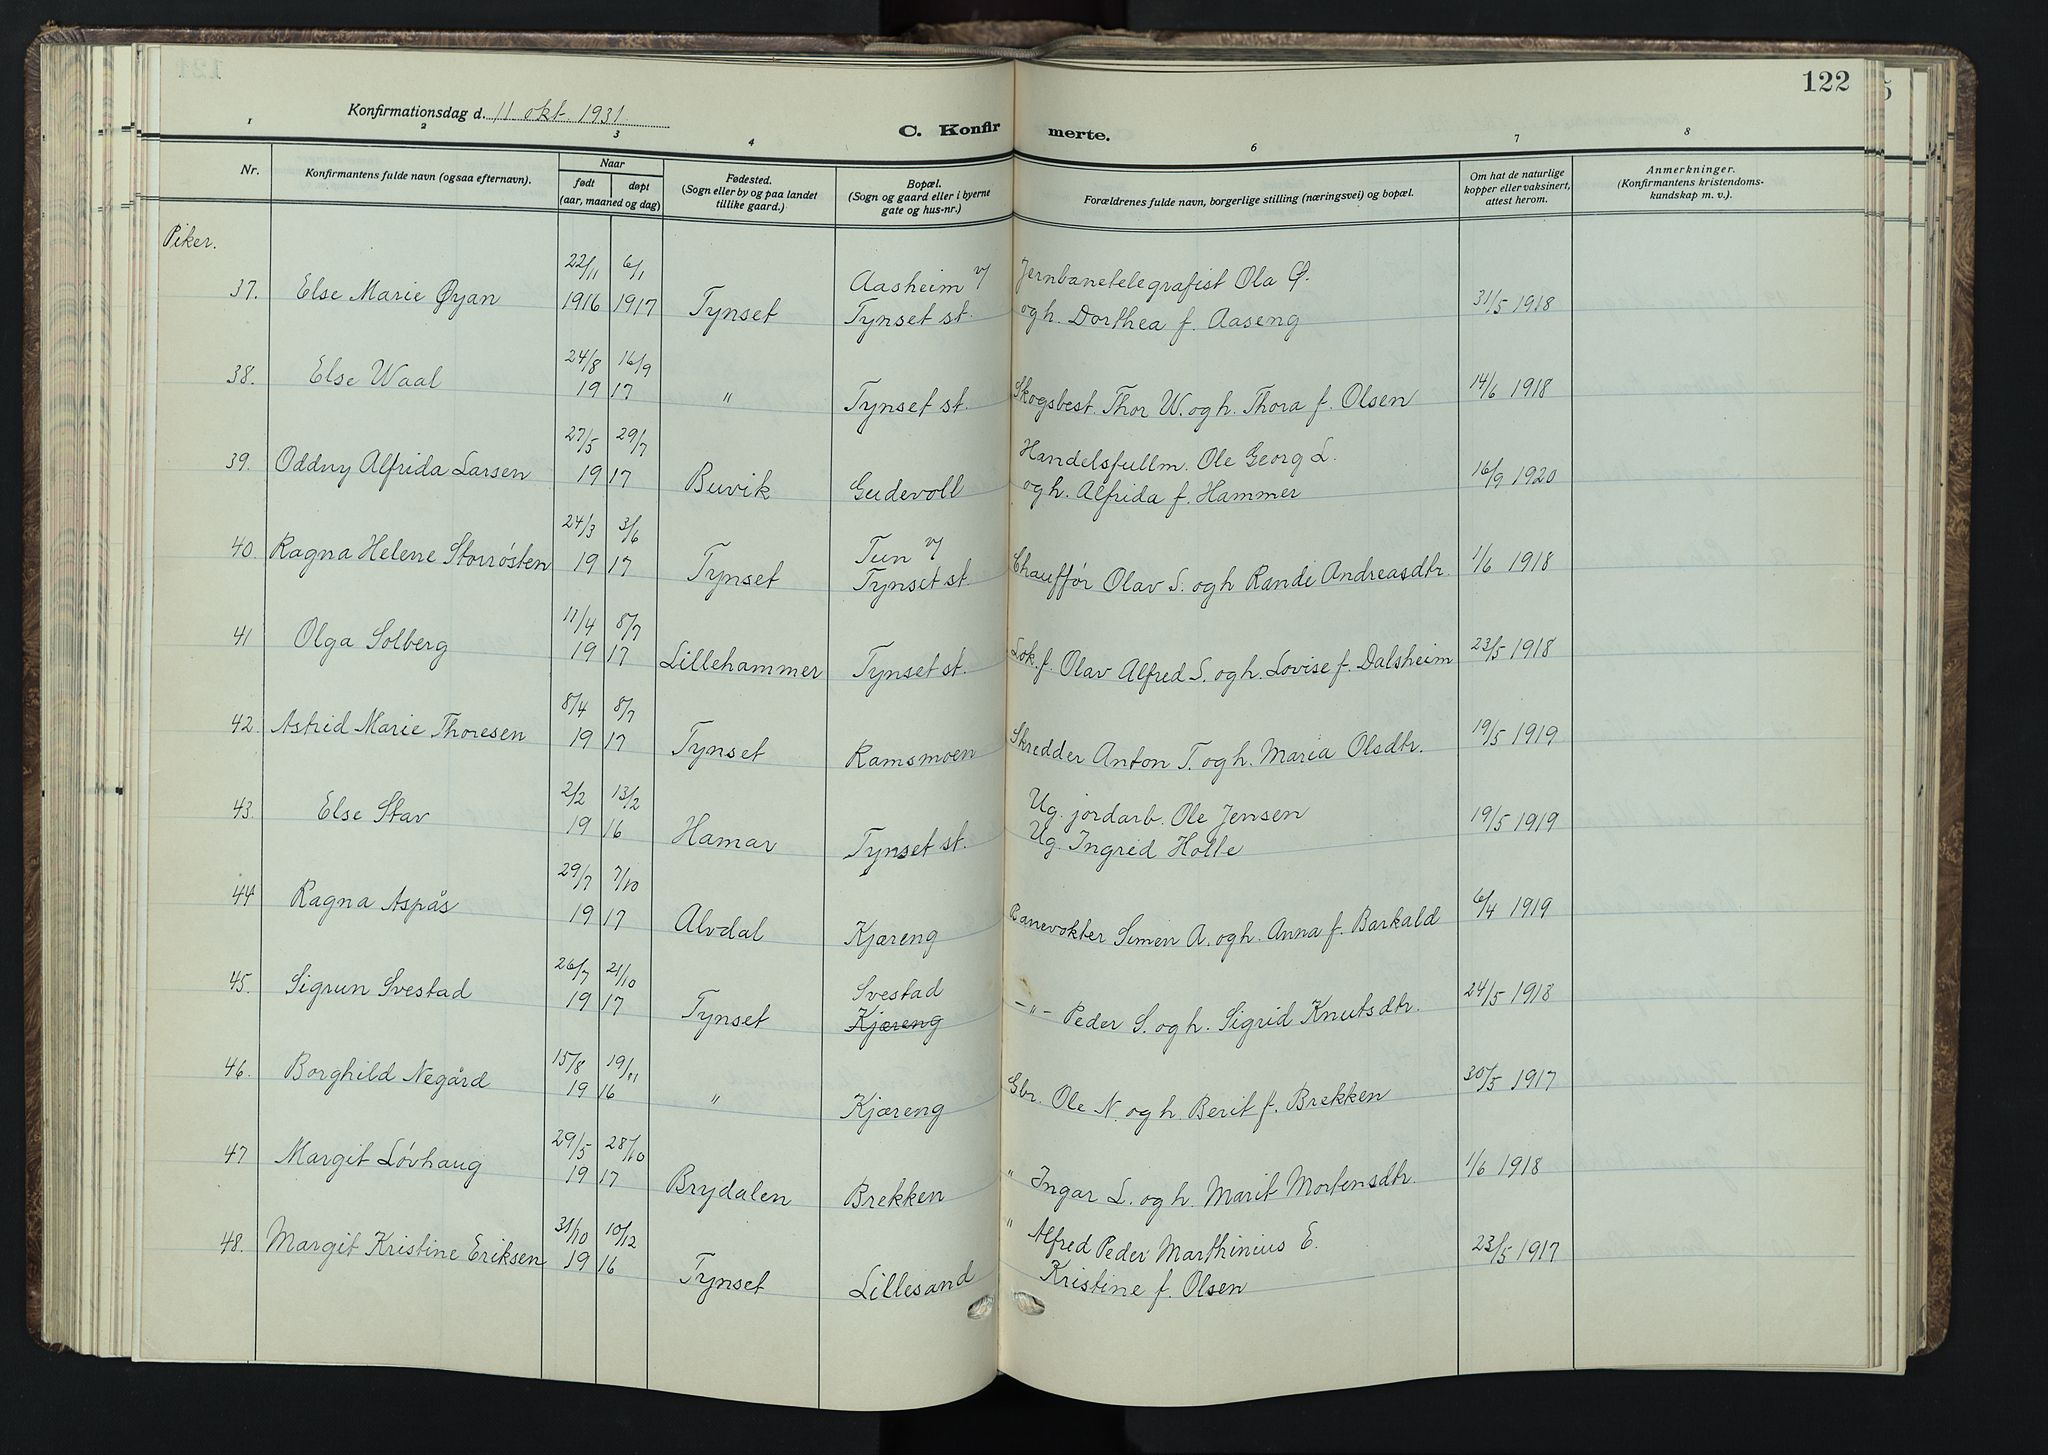 122
Konfirmationsdag d. 11 okt. 1931.
C. Konfirmerte.
1 2 3 4 6 7 8
Nr. Konfirmantens fulde navn (ogsaa efternavn). Naar født døpt (aar, maaned og dag) Fødested. (Sogn eller by og paa landet tillike gaard.) Bopæl. (Sogn og gaard eller i byerne gate og hus-nr.) Forældrenes fulde navn, borgerlige stilling (næringsvei) og bopæl. Om hat de naturlige kopper eller vaksinert, attest herom. Anmerkninger. (Konfirmantens kristendomskundskap m. v.).
Piker.
22/11 6/1 Aasheim v/ Jernbanetelegrafist Ola Ø.
37. Else Marie Øyan 1916 1917 Tynset Tynset st. og h. Dorthea f. Aaseng 31/5 1918
24/8 16/9
38. Else Waal 19 17 " Tynset st. Skogsbest. Thor W. og h. Thora f. Olsen 14/6 1918
27/5 29/7 Handelsfullm. Ole Georg L.
39. Oddny Alfrida Larsen 19 17 Buvik Gudevoll og h. Alfrida f. Hammer 16/9 1920
24/3 3/6 Tun v/
40. Ragna Helene Storrøsten 19 17 Tynset Tynset st. Chauffør Olav S. og h Randi Andreasdtr. 1/6 1918
11/4 8/7
41 Olga Solberg 19 17 Lillehammer Tynset st. Lok.f. Olav Alfred S. og h. Lovise f. Dalsheim 23/5 1918
8/4 8/7
42. Astrid Marie Thoresen 19 17 Tynset Ramsmoen Skredder Anton T. og h. Maria Olsdtr. 19/5 1919
2/2 13/2 Ug. jordarb. Ole Jensen
43. Else Stav 19 16 Hamar Tynset st. Ug. Ingrid Holle 19/5 1919
29/7 7/10
44 Ragna Aspås 19 17 Alvdal Kjæreng Banevokter Simen A. og h. Anna f. Barkald 6/4 1919
26/7 21/10 Svestad
45. Sigrun Svestad 19 17 Tynset Kjæreng -"- Peder S. og h. Sigrid Knutsdtr. 24/5 1918
15/8 19/11
46. Borghild Negård 19 16 " Kjæreng Gbr. Ole N. og h. Berit f. Brekken 30/5 1917
29/5 28/10
47 Margit Løvhaug 19 17 Brydalen Brekken " Ingar L. og h. Marit Mortensdtr. 1/6 1918
31/10 10/12 " Alfred Peder Marthinius E.
48. Margit Kristine Eriksen 19 16 Tynset Lillesand Kristine f. Olsen 23/5 1917